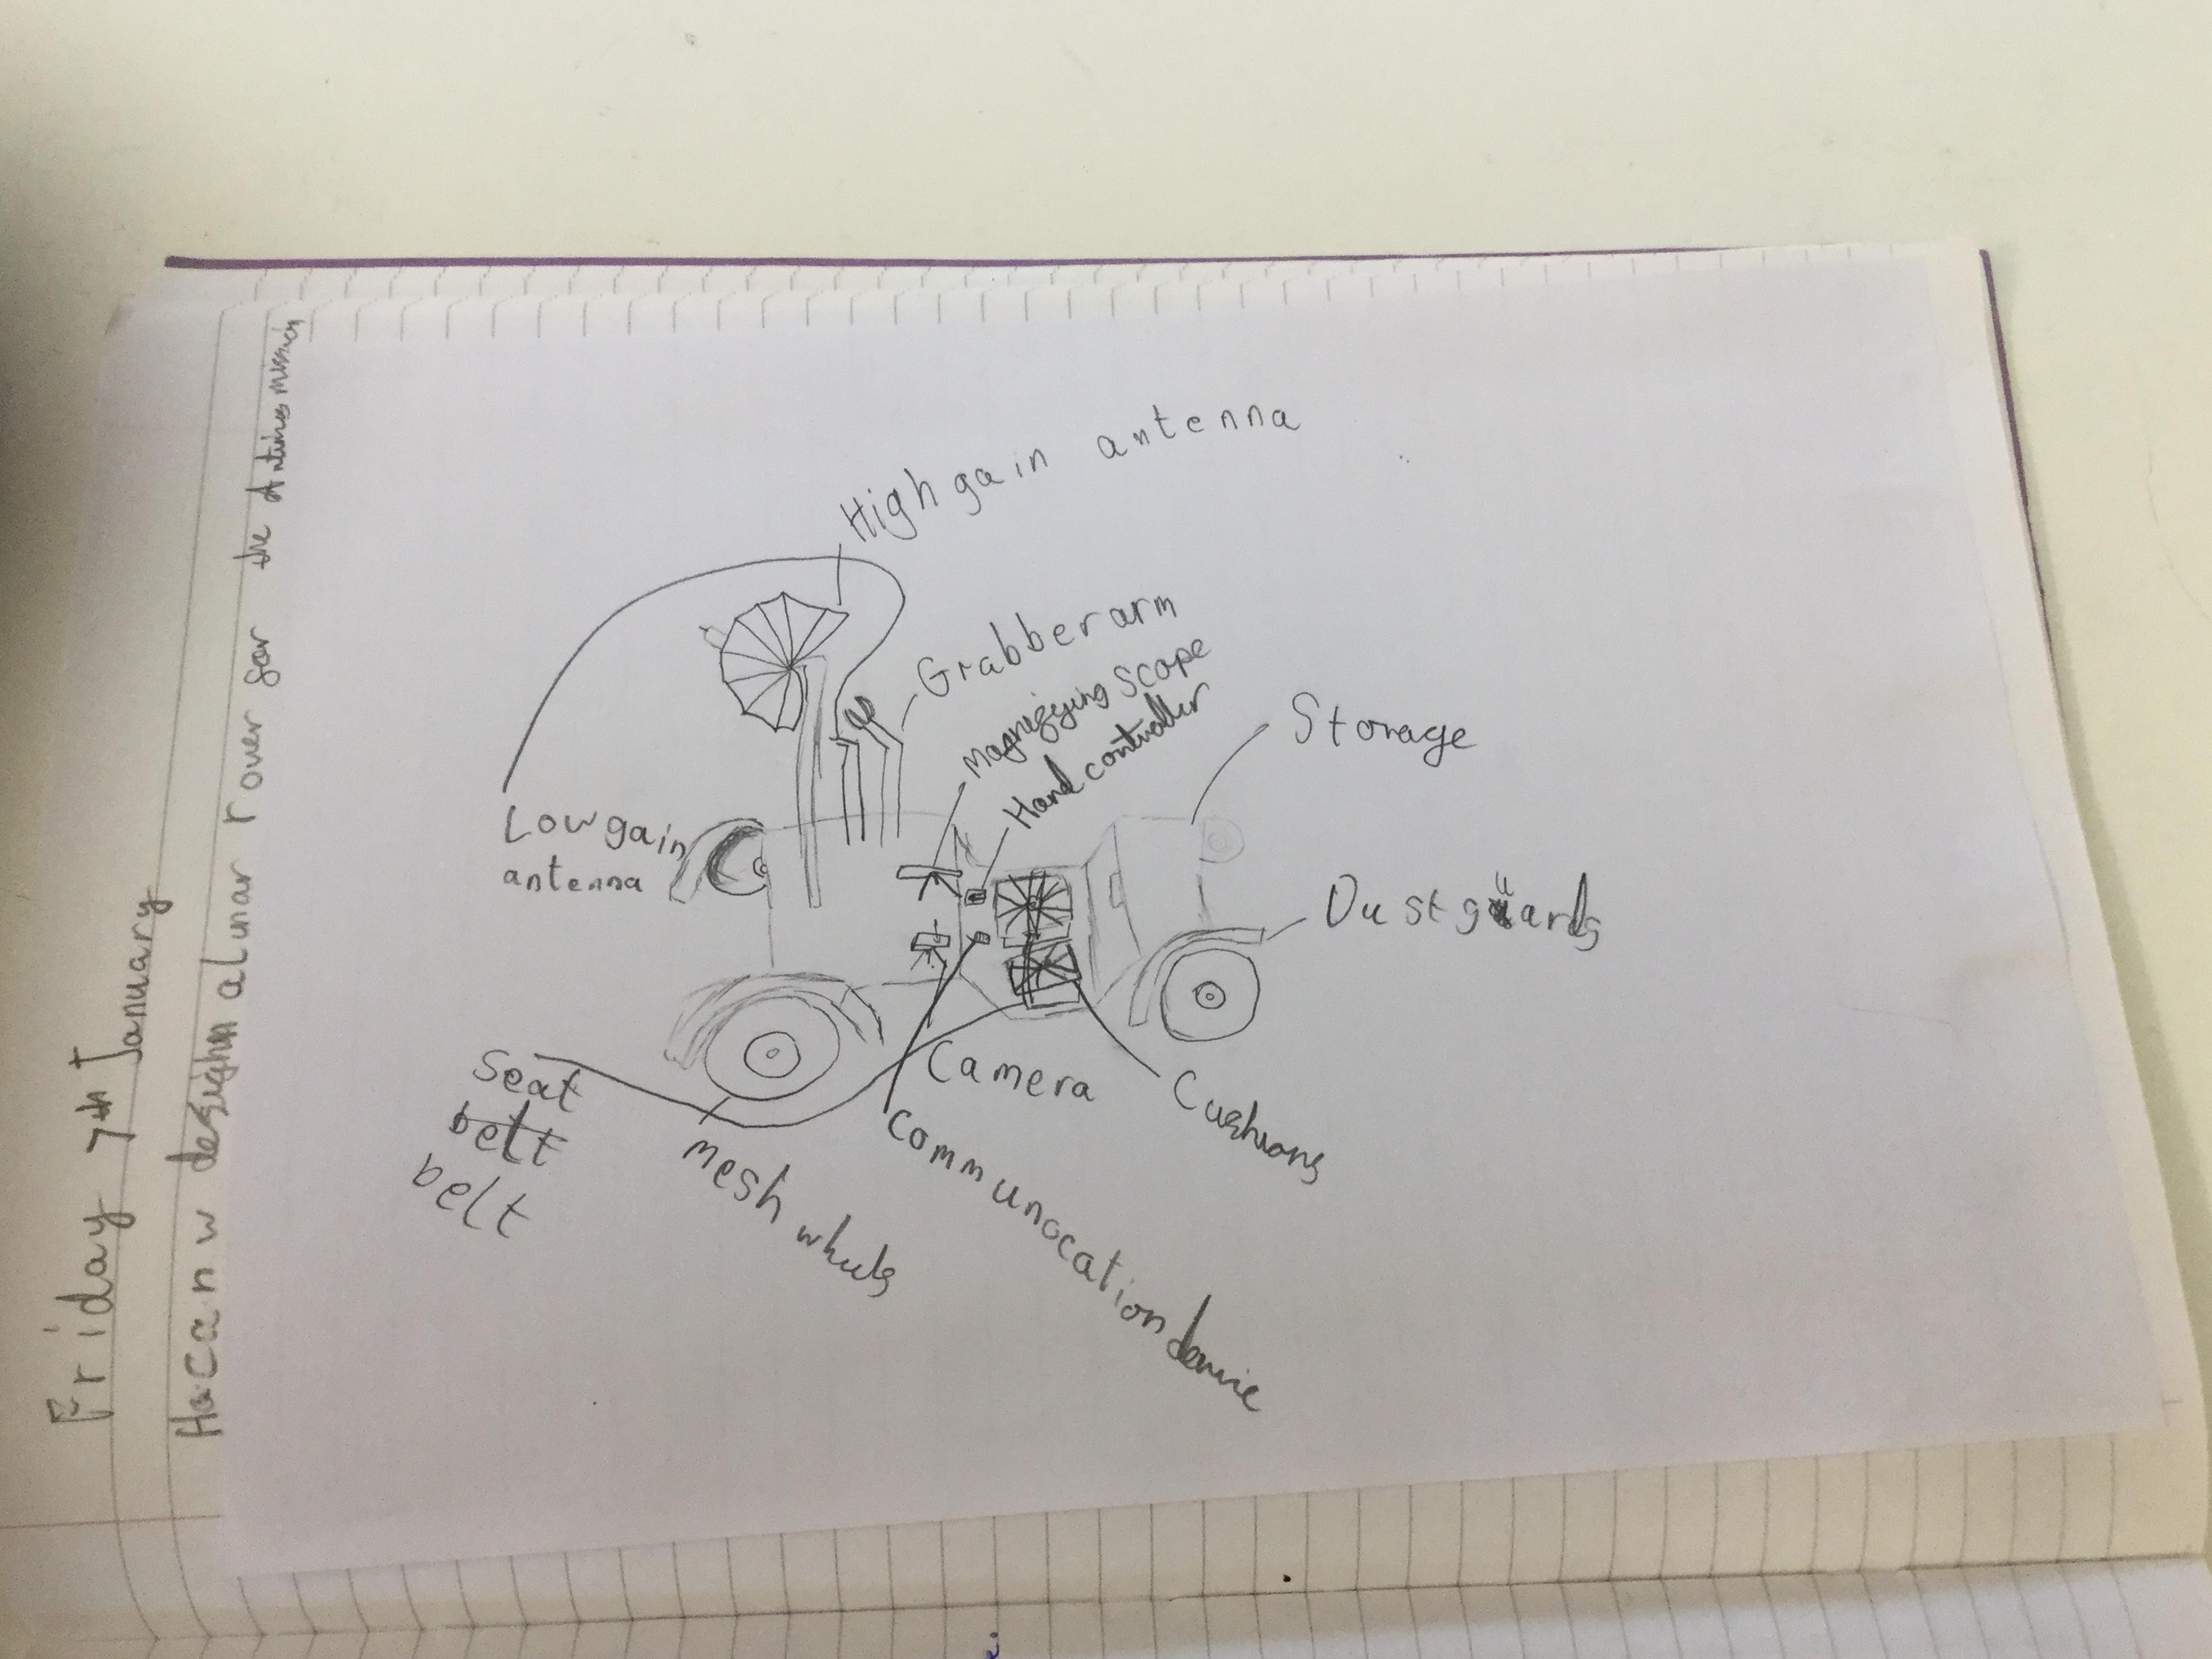 Friday 7th January
Ha Can w desighn a lunar rover for the mission
High gain antenna
Grabber arm
Magnifying scope
Hand controller
Storage
Low gain
antenna
Dust guards
Camera
Cushions
Seat
belt
belt
Mesh
Communocation